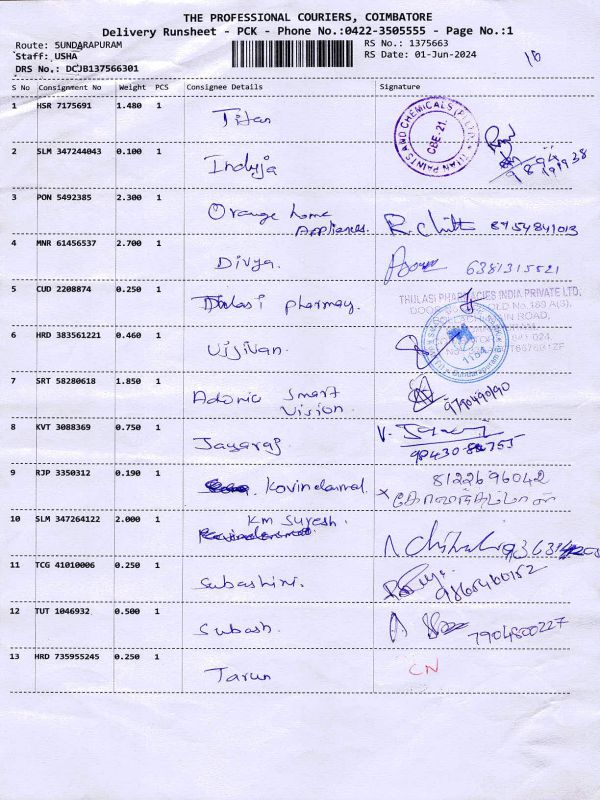 THE PROFESSIONAL COURIERS, COIMBATORE
Delivery Runsheet - PCK - Phone No.:0422-3505555 - Page No.:1
Route: SUNDARAPURAM RS No.: 1375663
Staff: USHA RS Date: 01-Jun-2024
DRS No.: DCJB137566301
S No Consignment No Weight PCS Consignee Details Signature
1 HSR 7175691 1.480 1 Titan
TITAN PAINTS AND CHEMICALS (P) LTD CBE-21.
2 SLM 347244043 0.100 1 Induja
3 PON 5492385 2.300 1 Orange home
Appliances. R. Chitt 8754841013
4 MNR 61456537 2.700 1 Divya. 6381315521
5 CUD 2208874 0.250 1 Thulasi pharmacy.
THULASI PHARMACIES INDIA PRIVATE LTD.
6 HRD 383561221 0.460 1 Vijivan.
1184
7 SRT 58280618 1.850 1 Adonic Smart
Vision. 9790490190
8 KVT 3088369 0.750 1 Jayaraj.
9 RJP 3350312 0.190 1 Kovindammal 8122696042
10 SLM 347264122 2.000 1 KM Suresh.
11 TCG 41010006 0.250 1 Subashini. 9865460152
12 TUT 1046932 0.500 1 Subash. 7904800227
13 HRD 735955245 0.250 1 Tarun CN